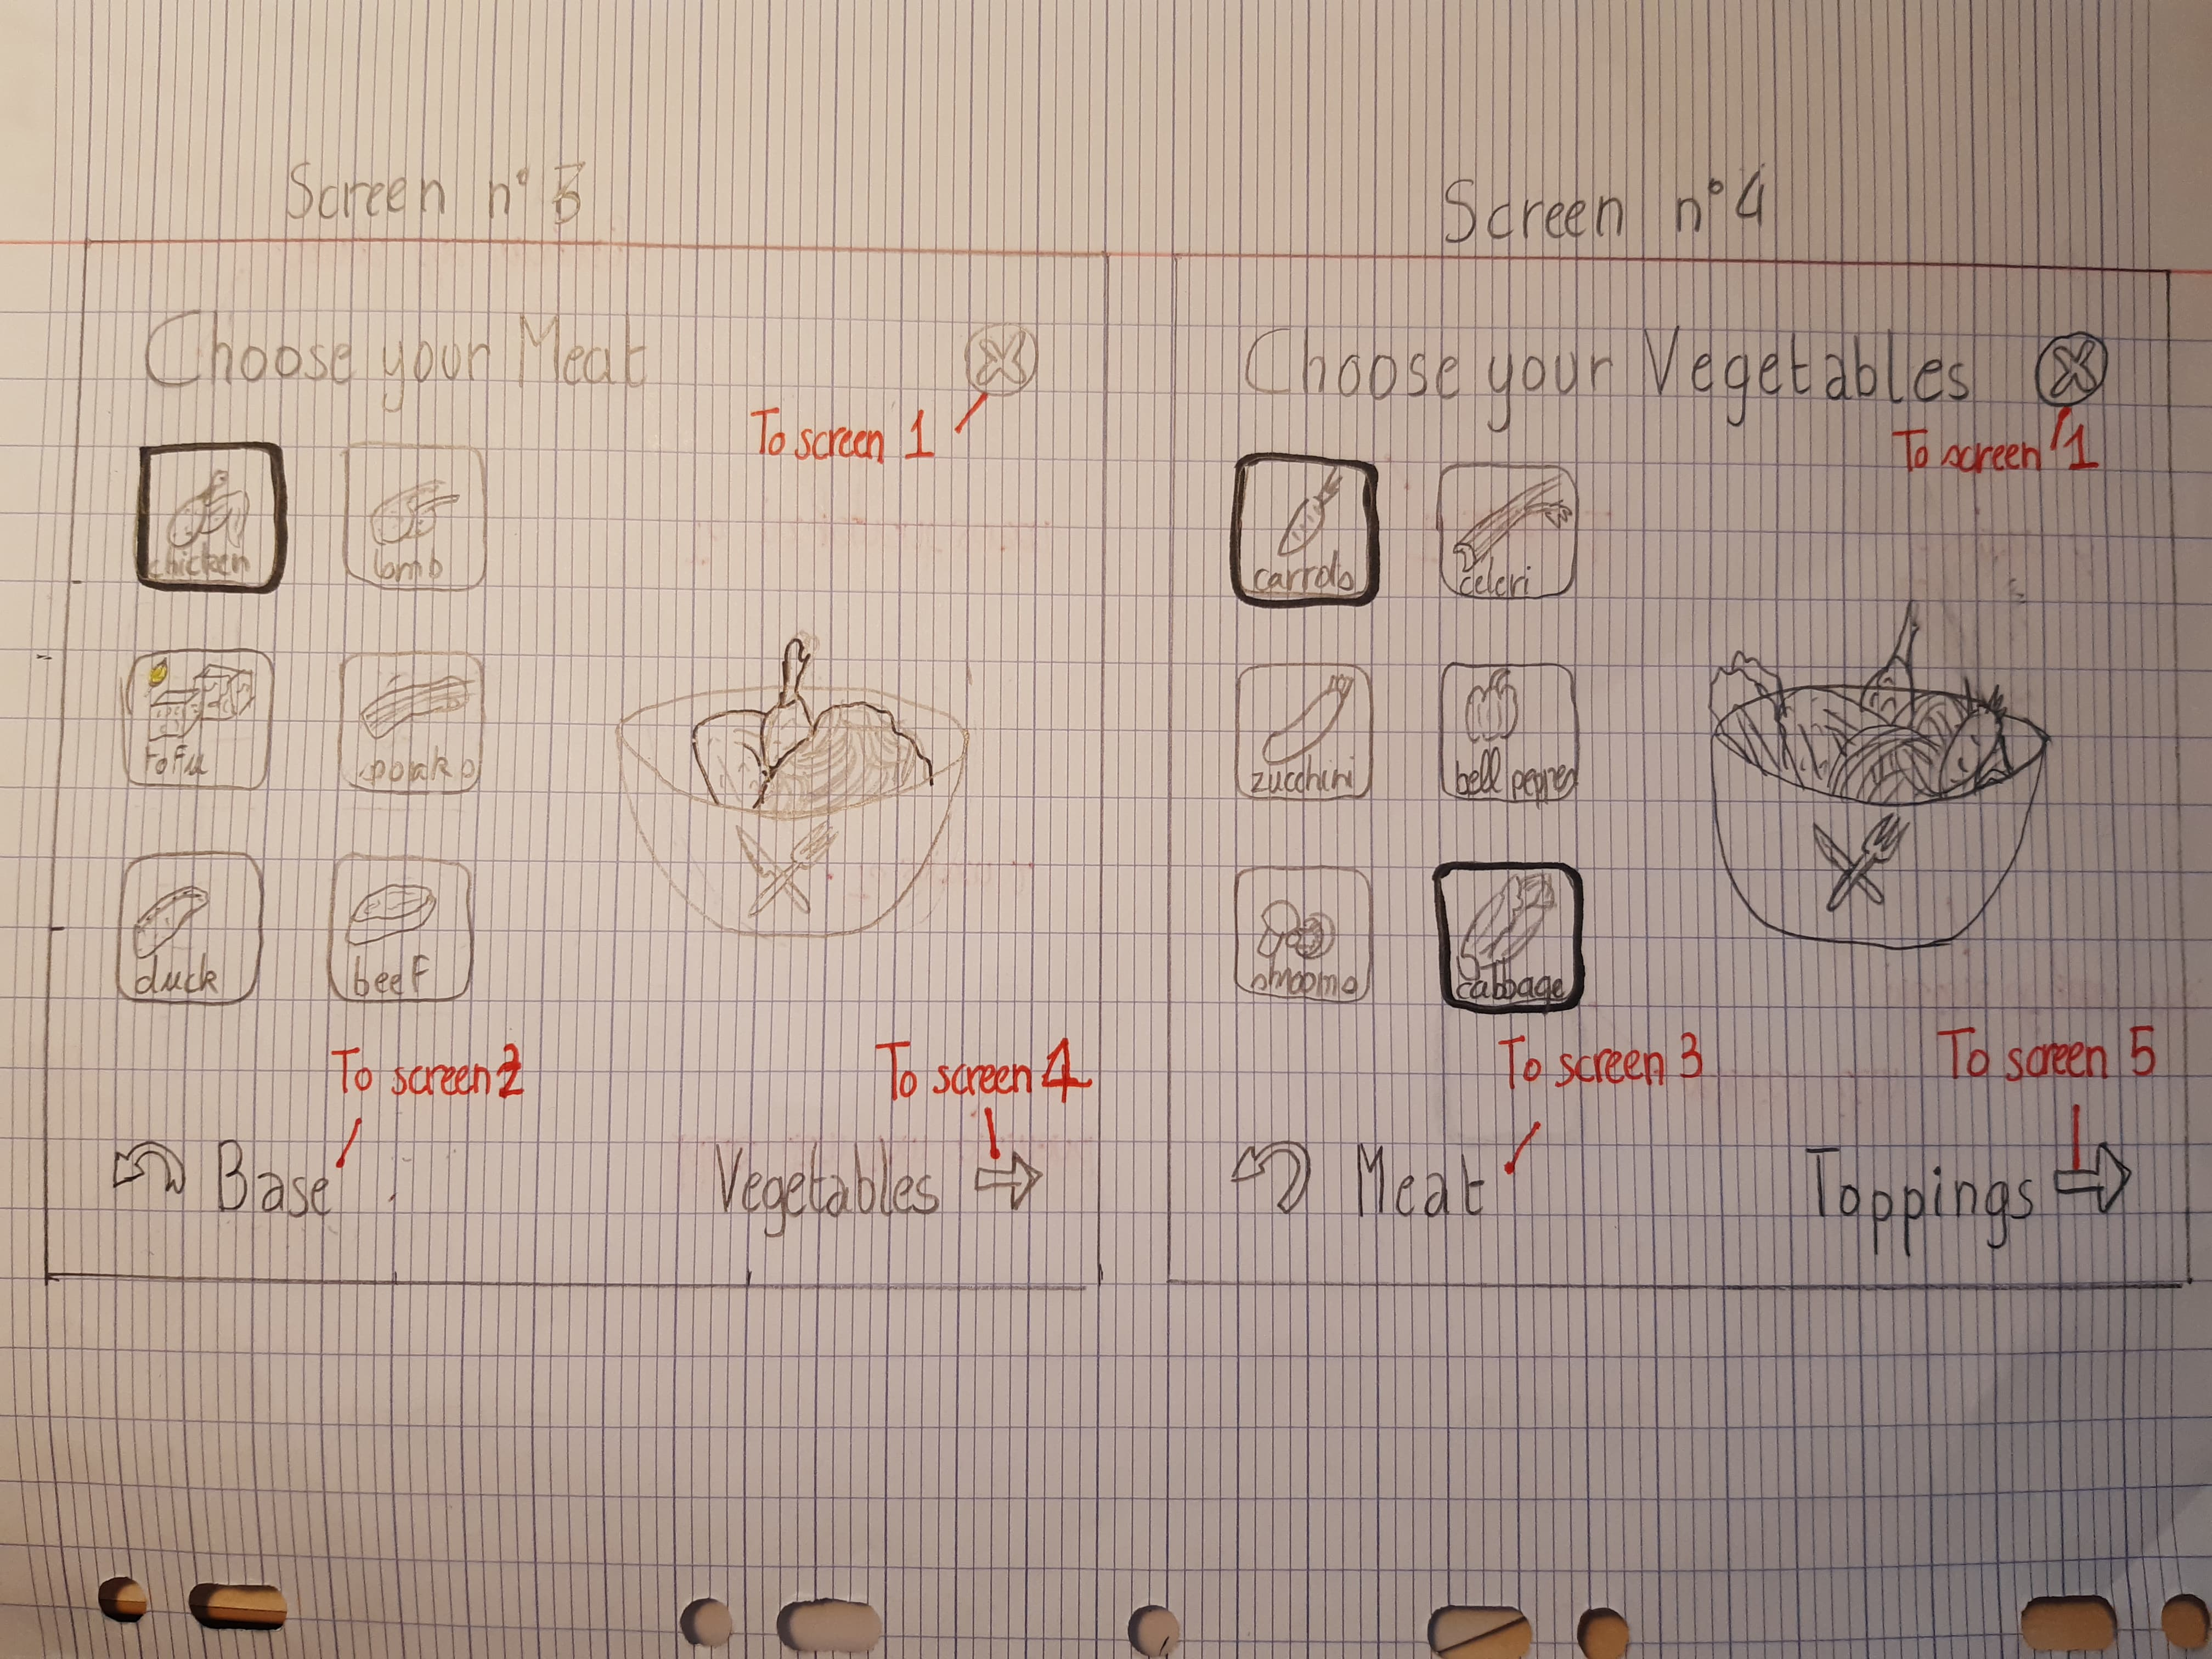 Screen n° 3
Choose your Meat
To screen 1
chicken
lamb
Tofu
duck
beef
To screen 2
To screen 4
Base
Vegetables
Screen n° 4
Choose your Vegetables
To screen 1
carrots
celeri
zucchini
bell pepper
shrooms
cabbage
To screen 3
To screen 5
Meat
Toppings